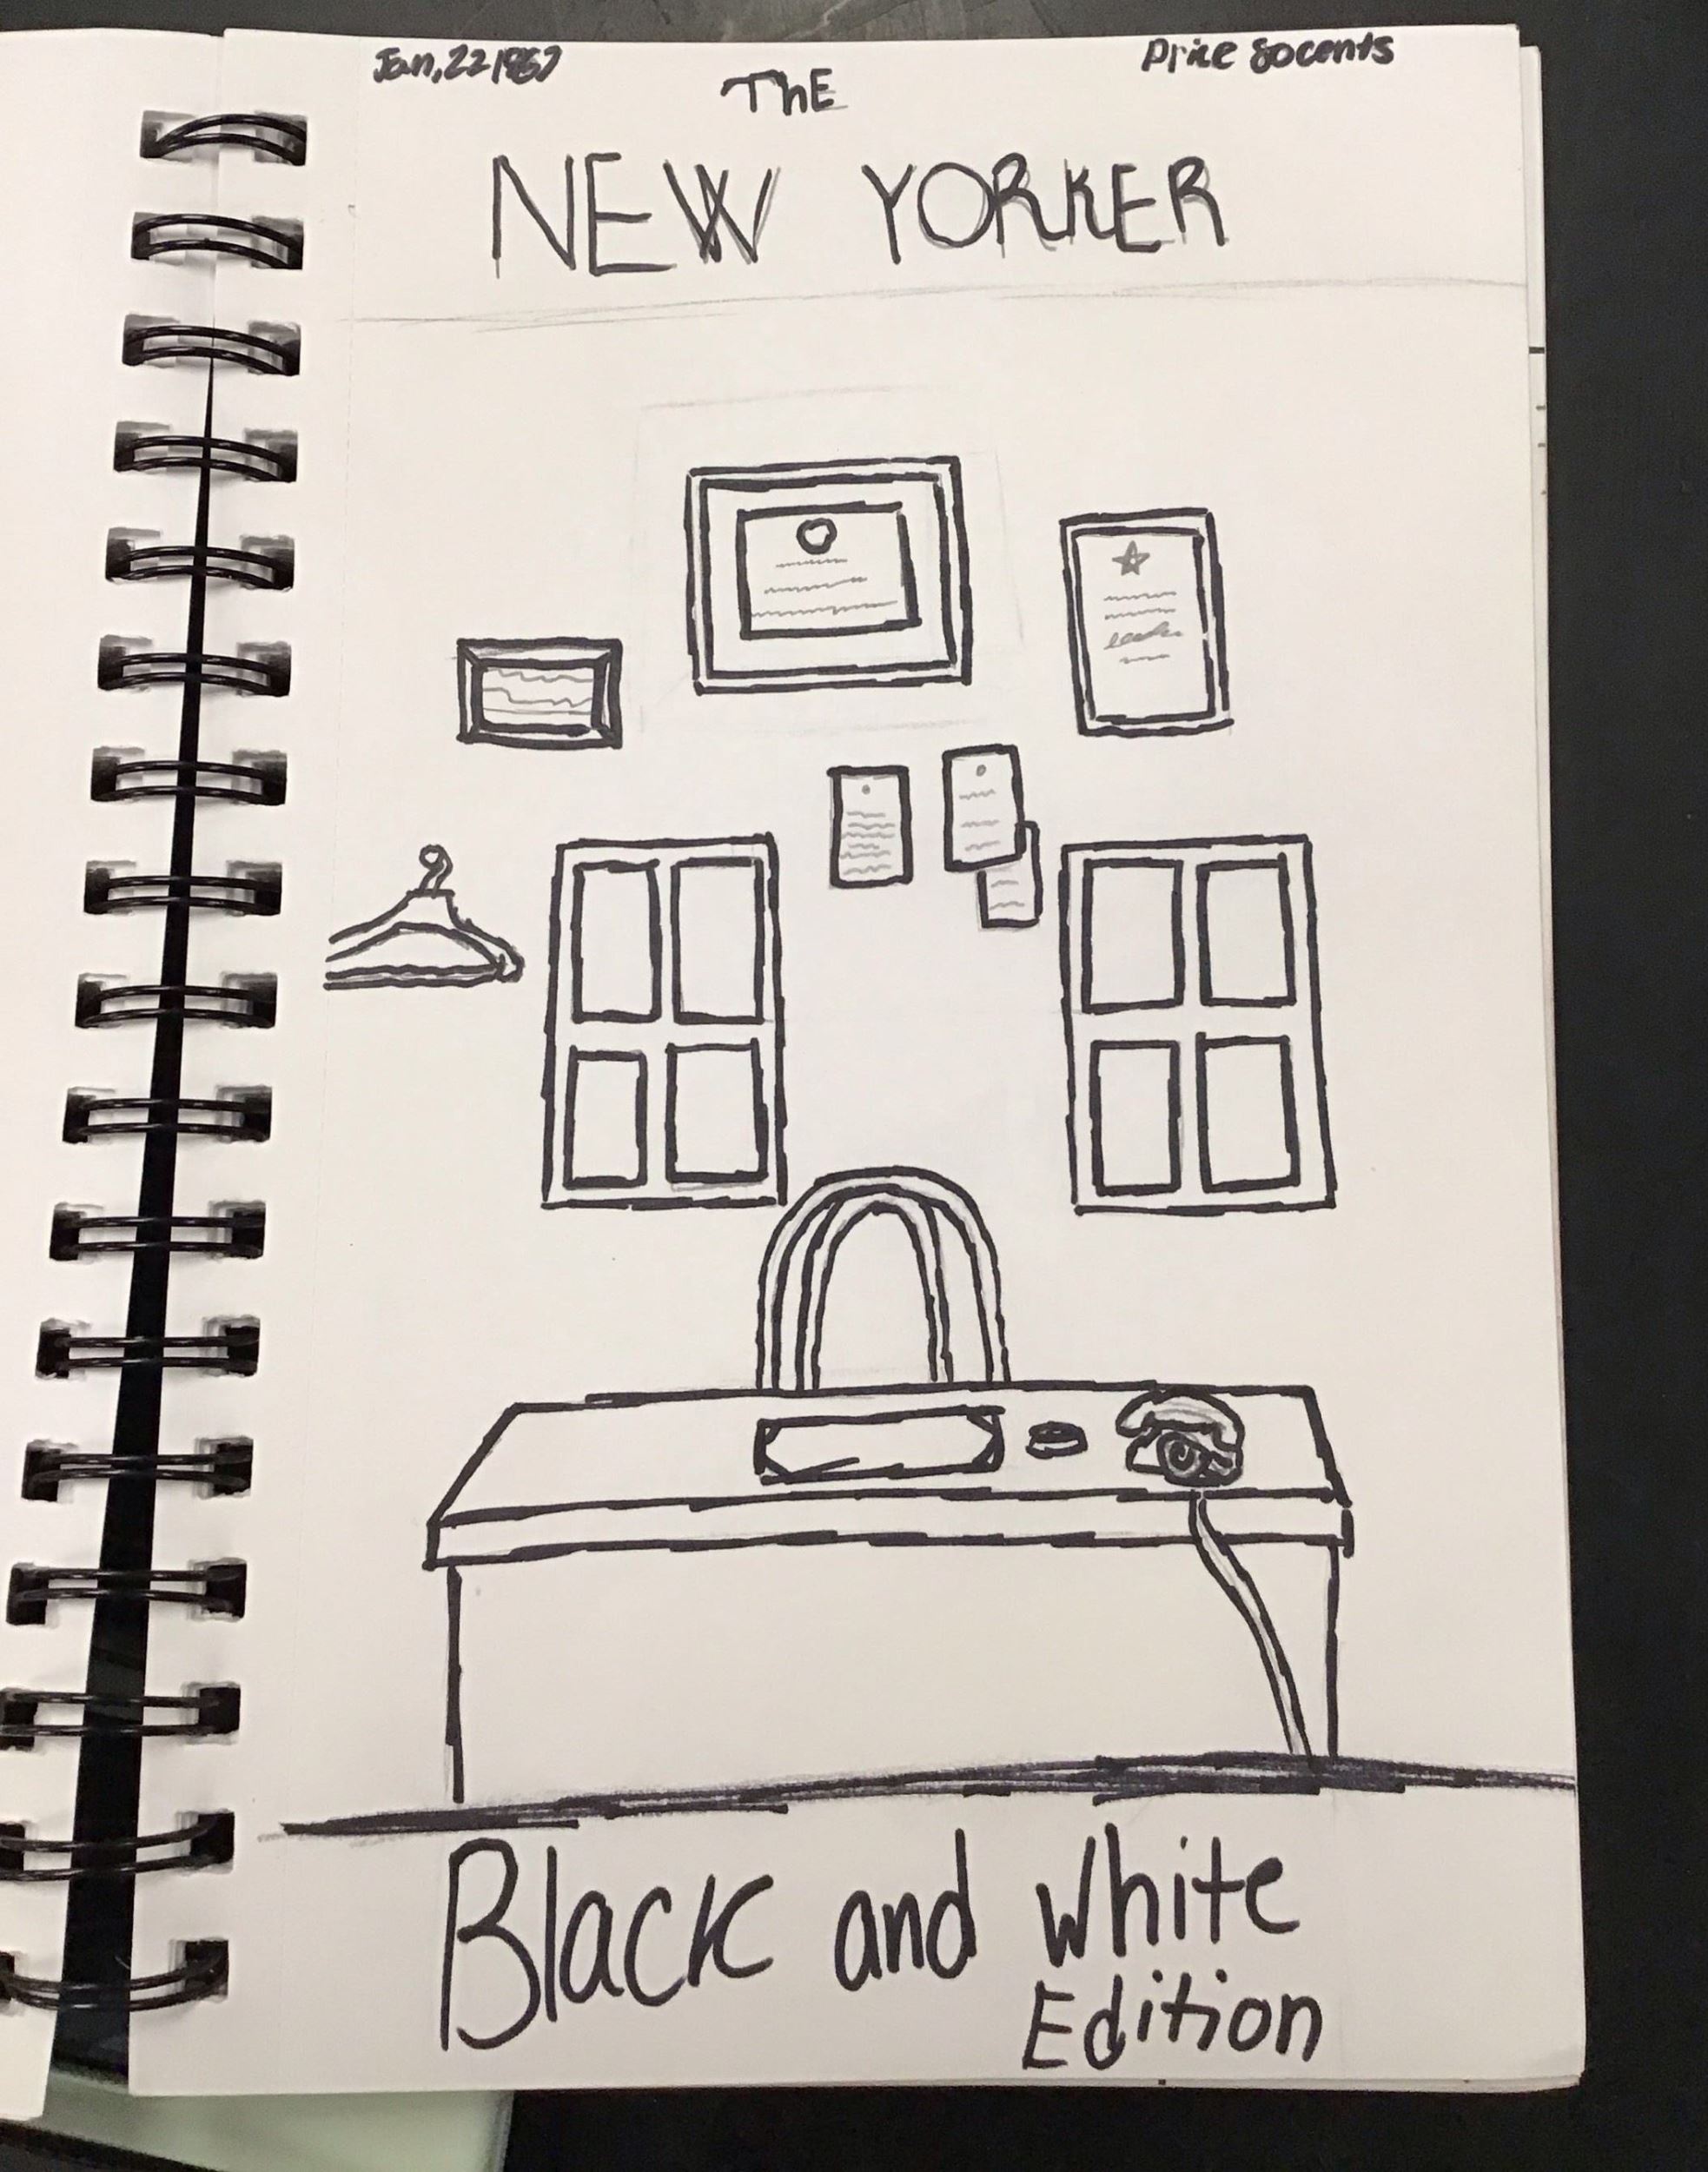 Jan, 22 1967
Price 80 cents
The
NEW YORKER
Black and white
Edition